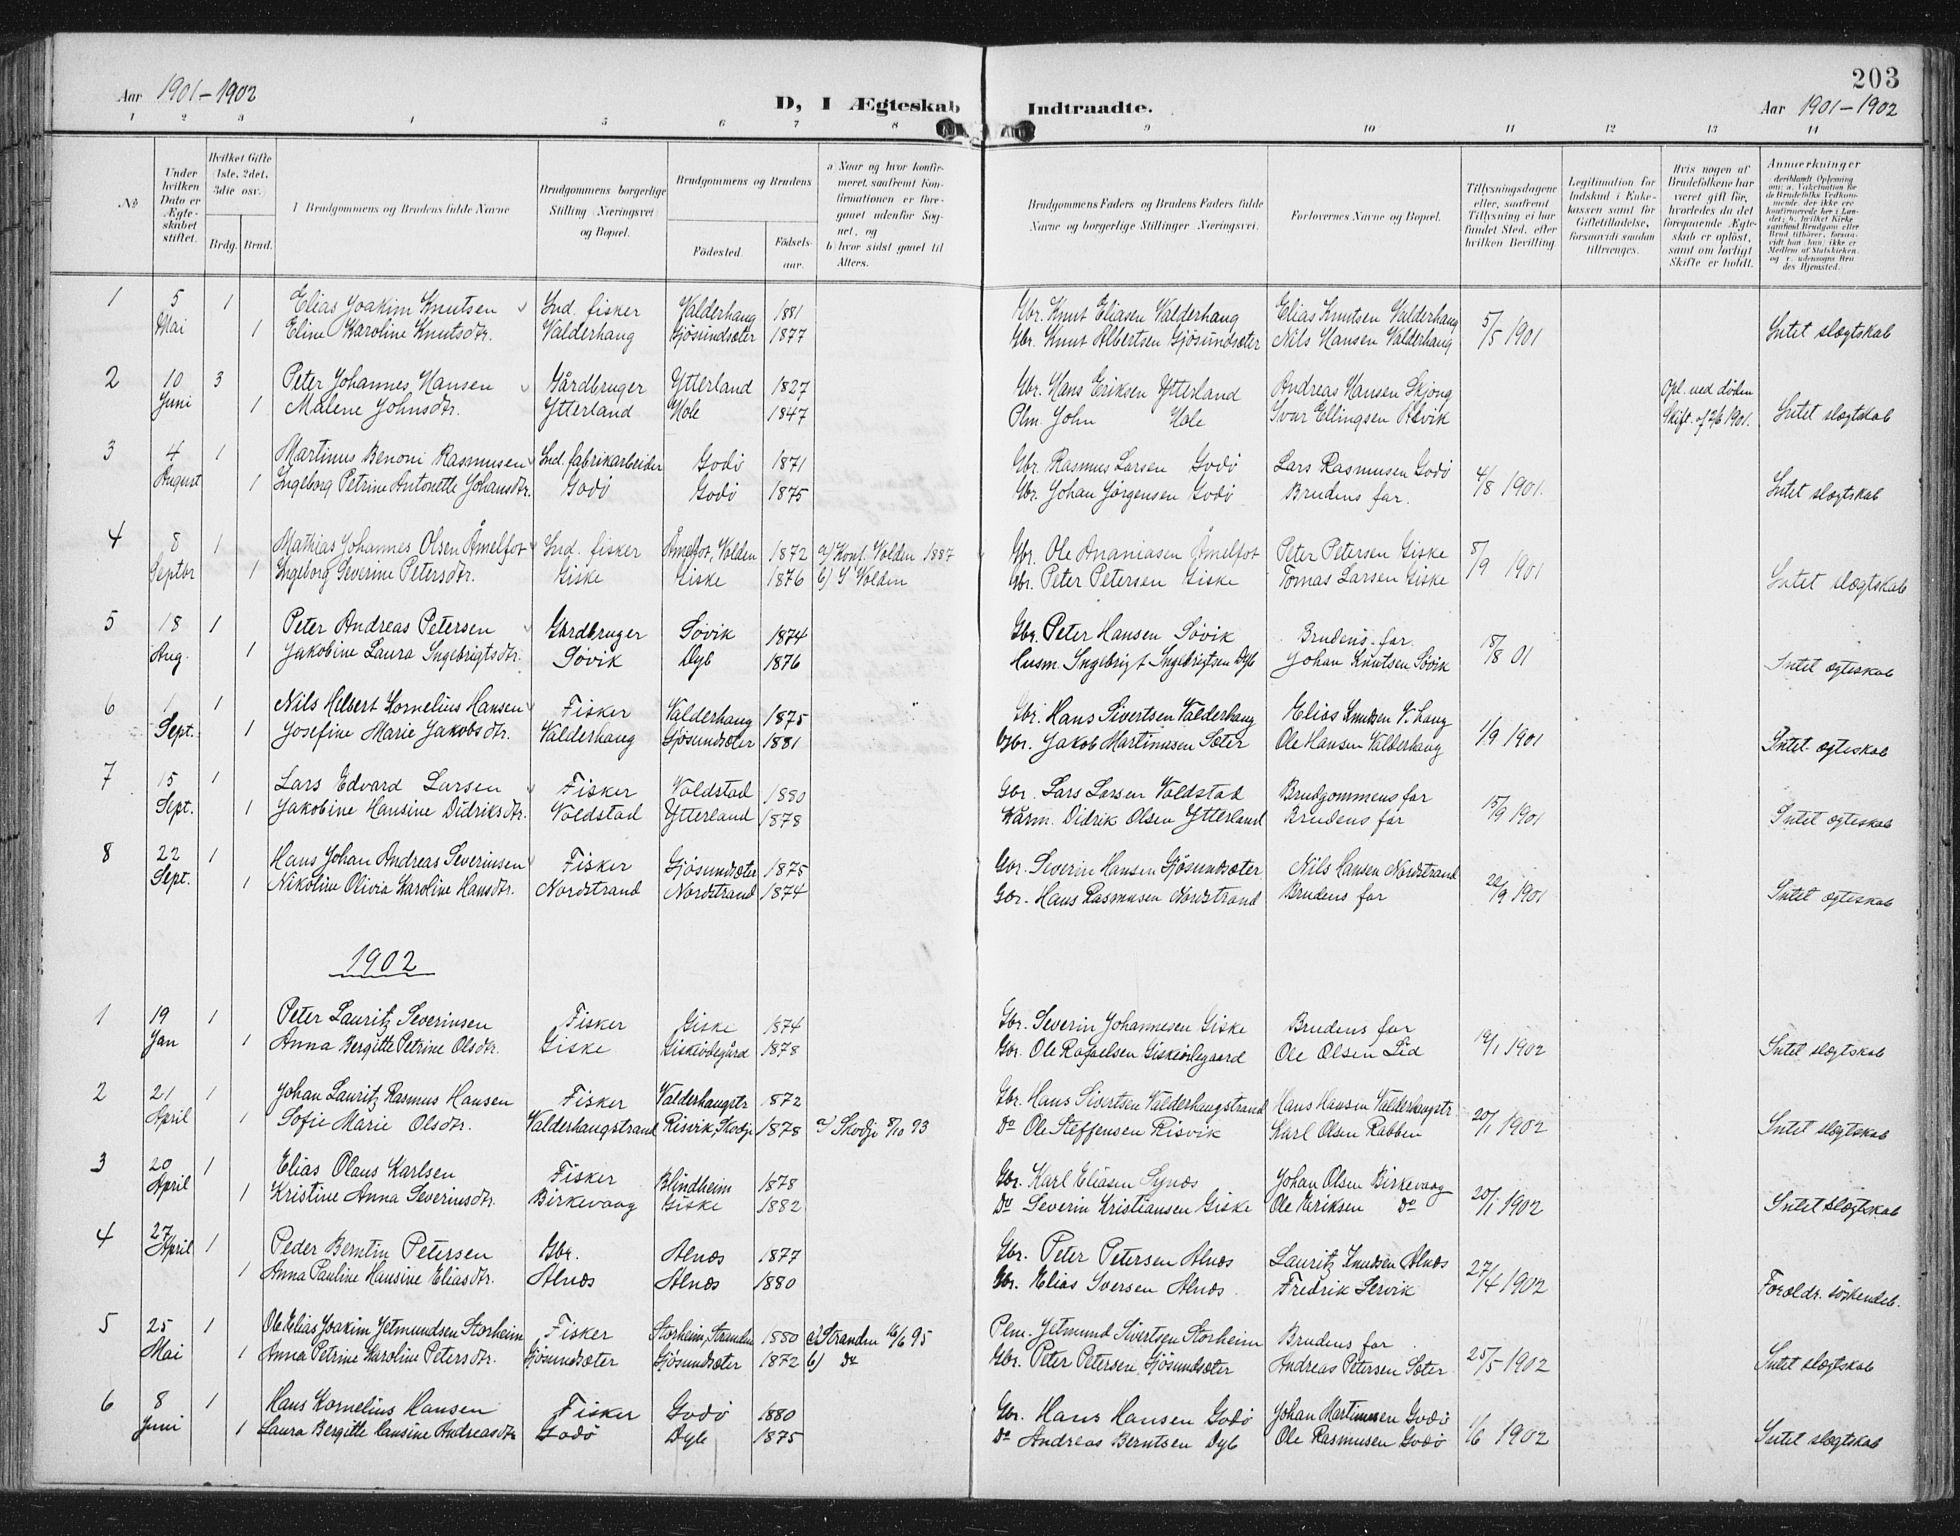 203
Aar 1901-1902 D, I Ægteskab Indtraadte. Aar 1901-1902
1 2 3 4 5 6 7 8 9 10 11 12 13 14
No
Under hvilken Dato er Ægteskabet stiftet.
Hvilket Gifte (1ste, 2det, 3die osv.)
Brdg. Brud.
1 Brudgommens og Brudens fulde Navne
Brudgommens borgerlige Stilling (Næringsvei) og Bopæl.
Brudgommens og Brudens
Fødested. Fødselsaar.
a Naar og hvor konfirmeret, saafremt Konfirmationen er foregaaet udenfor Sognet, og
b) hvor sidst gaaet til Alters.
Brudgommens Faders og Brudens Faders fulde Navne og borgerlige Stillinger (Næringsvei.
Forlovernes Navne og Bopæl.
Tillysningsdagene eller, saafremt Tillysning ei har fundet Sted, efter hvilken Bevilling
Legitimation for Indskud i Enkekassen samt for Giftetilladelse, forsaavidt saadan tiltrænges.
Hvis nogen af Brudefolkene har været gift før, hvorledes da det foregaaende Ægteskab er opløst, samt om lovligt Skifte er holdt.
Anmerkninger
1 5 1 Elias Joakim Knutsen Ind. fisker Valderhaug 1881 Gbr. Knut Eliasen Valderhaug Elias Knutsen Valderhaug 5/5 1901
Mai 1 Eline Karoline Knutsdtr. Valderhaug Gjösundsæter 1877 Gbr. Knut Albertsen Gjösundsæter Nils Hansen Valderhaug Intet slægtskab
2 10 3 Peter Johannes Hansen Gårdbruger Ytterland 1827 Gbr. Hans Eriksen Ytterland Andreas Hansen Skjong Opl. ved døden
Juni 1 Malene Johnsdtr. Ytterland Hole 1847 Plm. John Hole Ivar Ellingsen Alvik Skift. af 2/6 1901. Intet slægtskab
3 4 1 Martinus Benoni Rasmusen Ind. fabrikarbeider Godö 1871 Gbr. Rasmus Larsen Godö Lars Rasmusen Godö
August 1 Ingeborg Petrine Antonette Johansdtr. Godö Godö 1875 Gbr. Johan Jörgensen Godö Brudens far. 4/8 1901. Intet slægtskab
4 8 1 Mathias Johannes Olsen Åmelfot Ind. fisker Åmelfot, Volden 1872 a) Konf. Volden 1887 Gbr. Ole Ananiasen Åmelfot Peter Petersen Giske 8/9 1901
Septbr 1 Ingeborg Severine Petersdtr. Giske Giske 1876 b) I Volden Gbr. Peter Petersen Giske Tomas Larsen Giske Intet slægtskab
5 18 1 Peter Andreas Petersen Gårdbruger Søvik 1874 Gbr. Peter Hansen Søvik Brudens far. 18/8 01
Aug. 1 Jakobine Laura Ingebrigtsdtr. Søvik Dyb 1876 Husm. Ingebrigt Ingebrigtsen Dyb Johan Knutsen Søvik Intet ægteskab
6 1 1 Nils Helbert Kornelius Hansen Fisker Valderhaug 1875 Gbr. Hans Sivertsen Valderhaug Elias Knudsen V.haug
Sept. 1 Josefine Marie Jakobsdtr. Valderhaug Gjösundsæter 1881 Gbr. Jakob Martinusen Sæter Ole Hansen Valderhaug 1/9 1901 Intet ægteskab
7 15 1 Lars Edvard Larsen Fisker Valdstad 1880 Gbr. Lars Larsen Valdstad Brudgommens far
Sept. 1 Jakobine Hansine Didriksdtr. Voldstad Ytterland 1878 Kårm. Didrik Olsen Ytterland Brudens far 15/9 1901 Intet ægteskab
8 22 1 Hans Johan Andreas Severinsen Fisker Gjösundsæter 1875 Gbr. Severin Hansen Gjösundsæter Nils Hansen Nordstrand
Sept. 1 Nikoline Olivia Karoline Hansdtr. Nordstrand Nordstrand 1874 Gbr. Hans Rasmusen Nordstrand Brudens far 22/9 1901 Intet ægteskab
1902
1 19 1 Peter Lauritz Severinsen Fisker Giske 1874 Gbr. Severin Johannesen Giske Brudens far
Jan 1 Anna Bergitte Petrine Olsdtr. Giske Giskeödegård 1878 Gbr. Ole Rafaelsen Giskeödegaard Ole Olsen Lid 19/1 1902 Intet slægtskab
2 21 1 Johan Lauritz Rasmus Hansen Fisker Valderhaugstr 1872 Gbr. Hans Sivertsen Valderhaugstrand Hans Hansen Valderhaugstr.
April 1 Sofie Marie Olsdtr. Valderhaugstrand Risvik, Skodje 1878 a) Skodje 8/10 93 Do Ole Steffensen Risvik Karl Olsen Rabben 20/1 1902 Intet slægtskab
3 20 1 Elias Olaus Karlsen Fisker Blindheim 1878 Gbr. Karl Eliasen Synes Johan Olsen Birkevaag
April 1 Kristine Anna Severinsdtr. Birkevaag Giske 1882 Do Severin Kristiansen Giske Ole Eriksen Do 20/1 1902 Intet slægtskab
4 27 1 Peder Berntin Petersen Gbr. Alnæs 1877 Gbr. Peter Petersen Alnæs Lauritz Knudsen Alnæs
April 1 Anna Pauline Hansine Eliasdtr. Alnæs Alnæs 1880 Gbr. Elias Iversen Alnæs. Fredrik Lervik 27/4 1902 Foræld. søskendeb.
5 25 1 Ole Elias Joakim Jetmundsen Storheim Fisker Storheim, Stranden 1880 a) Stranden 16/6 95 Plm. Jetmund Sivertsen Storheim Brudens far
Mai 1 Anna Petrine Karoline Petersdtr. Gjösundsæter Gjösundsæter 1872 b) do Gbr. Peter Petersen Gjösundsæter Andreas Petersen Sæter 25/5 1902 Intet slægtskab
6 8 1 Hans Kornelius Hansen Fisker Godö 1880 Gbr. Hans Hansen Godö Johan Martinusen Godö
Juni 1 Laura Bergitte Hansine Andreasdtr. Godö Dyb 1875 Do Andreas Berntsen Dyb Ole Rasmusen Godö 1/6 1902 Intet slægtskab